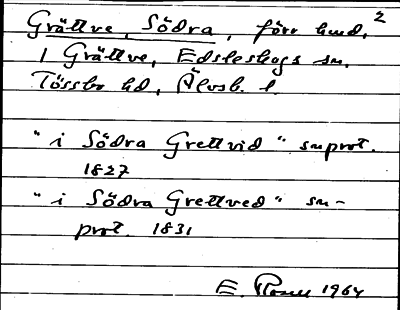 Grättve, Södra, förr hmd. 2
/ Grättve, Edsleskogs sn.
Tössbo hd, Älvsb. l.
"i Södra Grettvid" snprot.
1827
"i Södra Grettved" sn-
prot. 1831
E. Rosell 1964